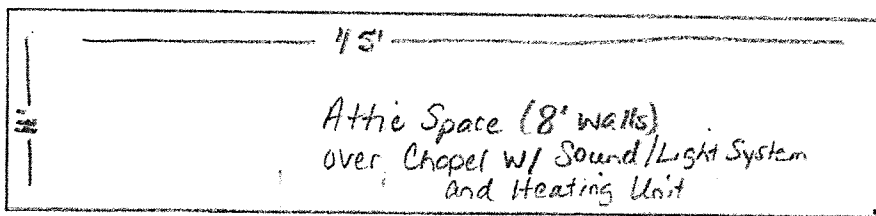 45'
Attic Space (8' walls)
over Chapel w/ Sound/Light System
and Heating Unit